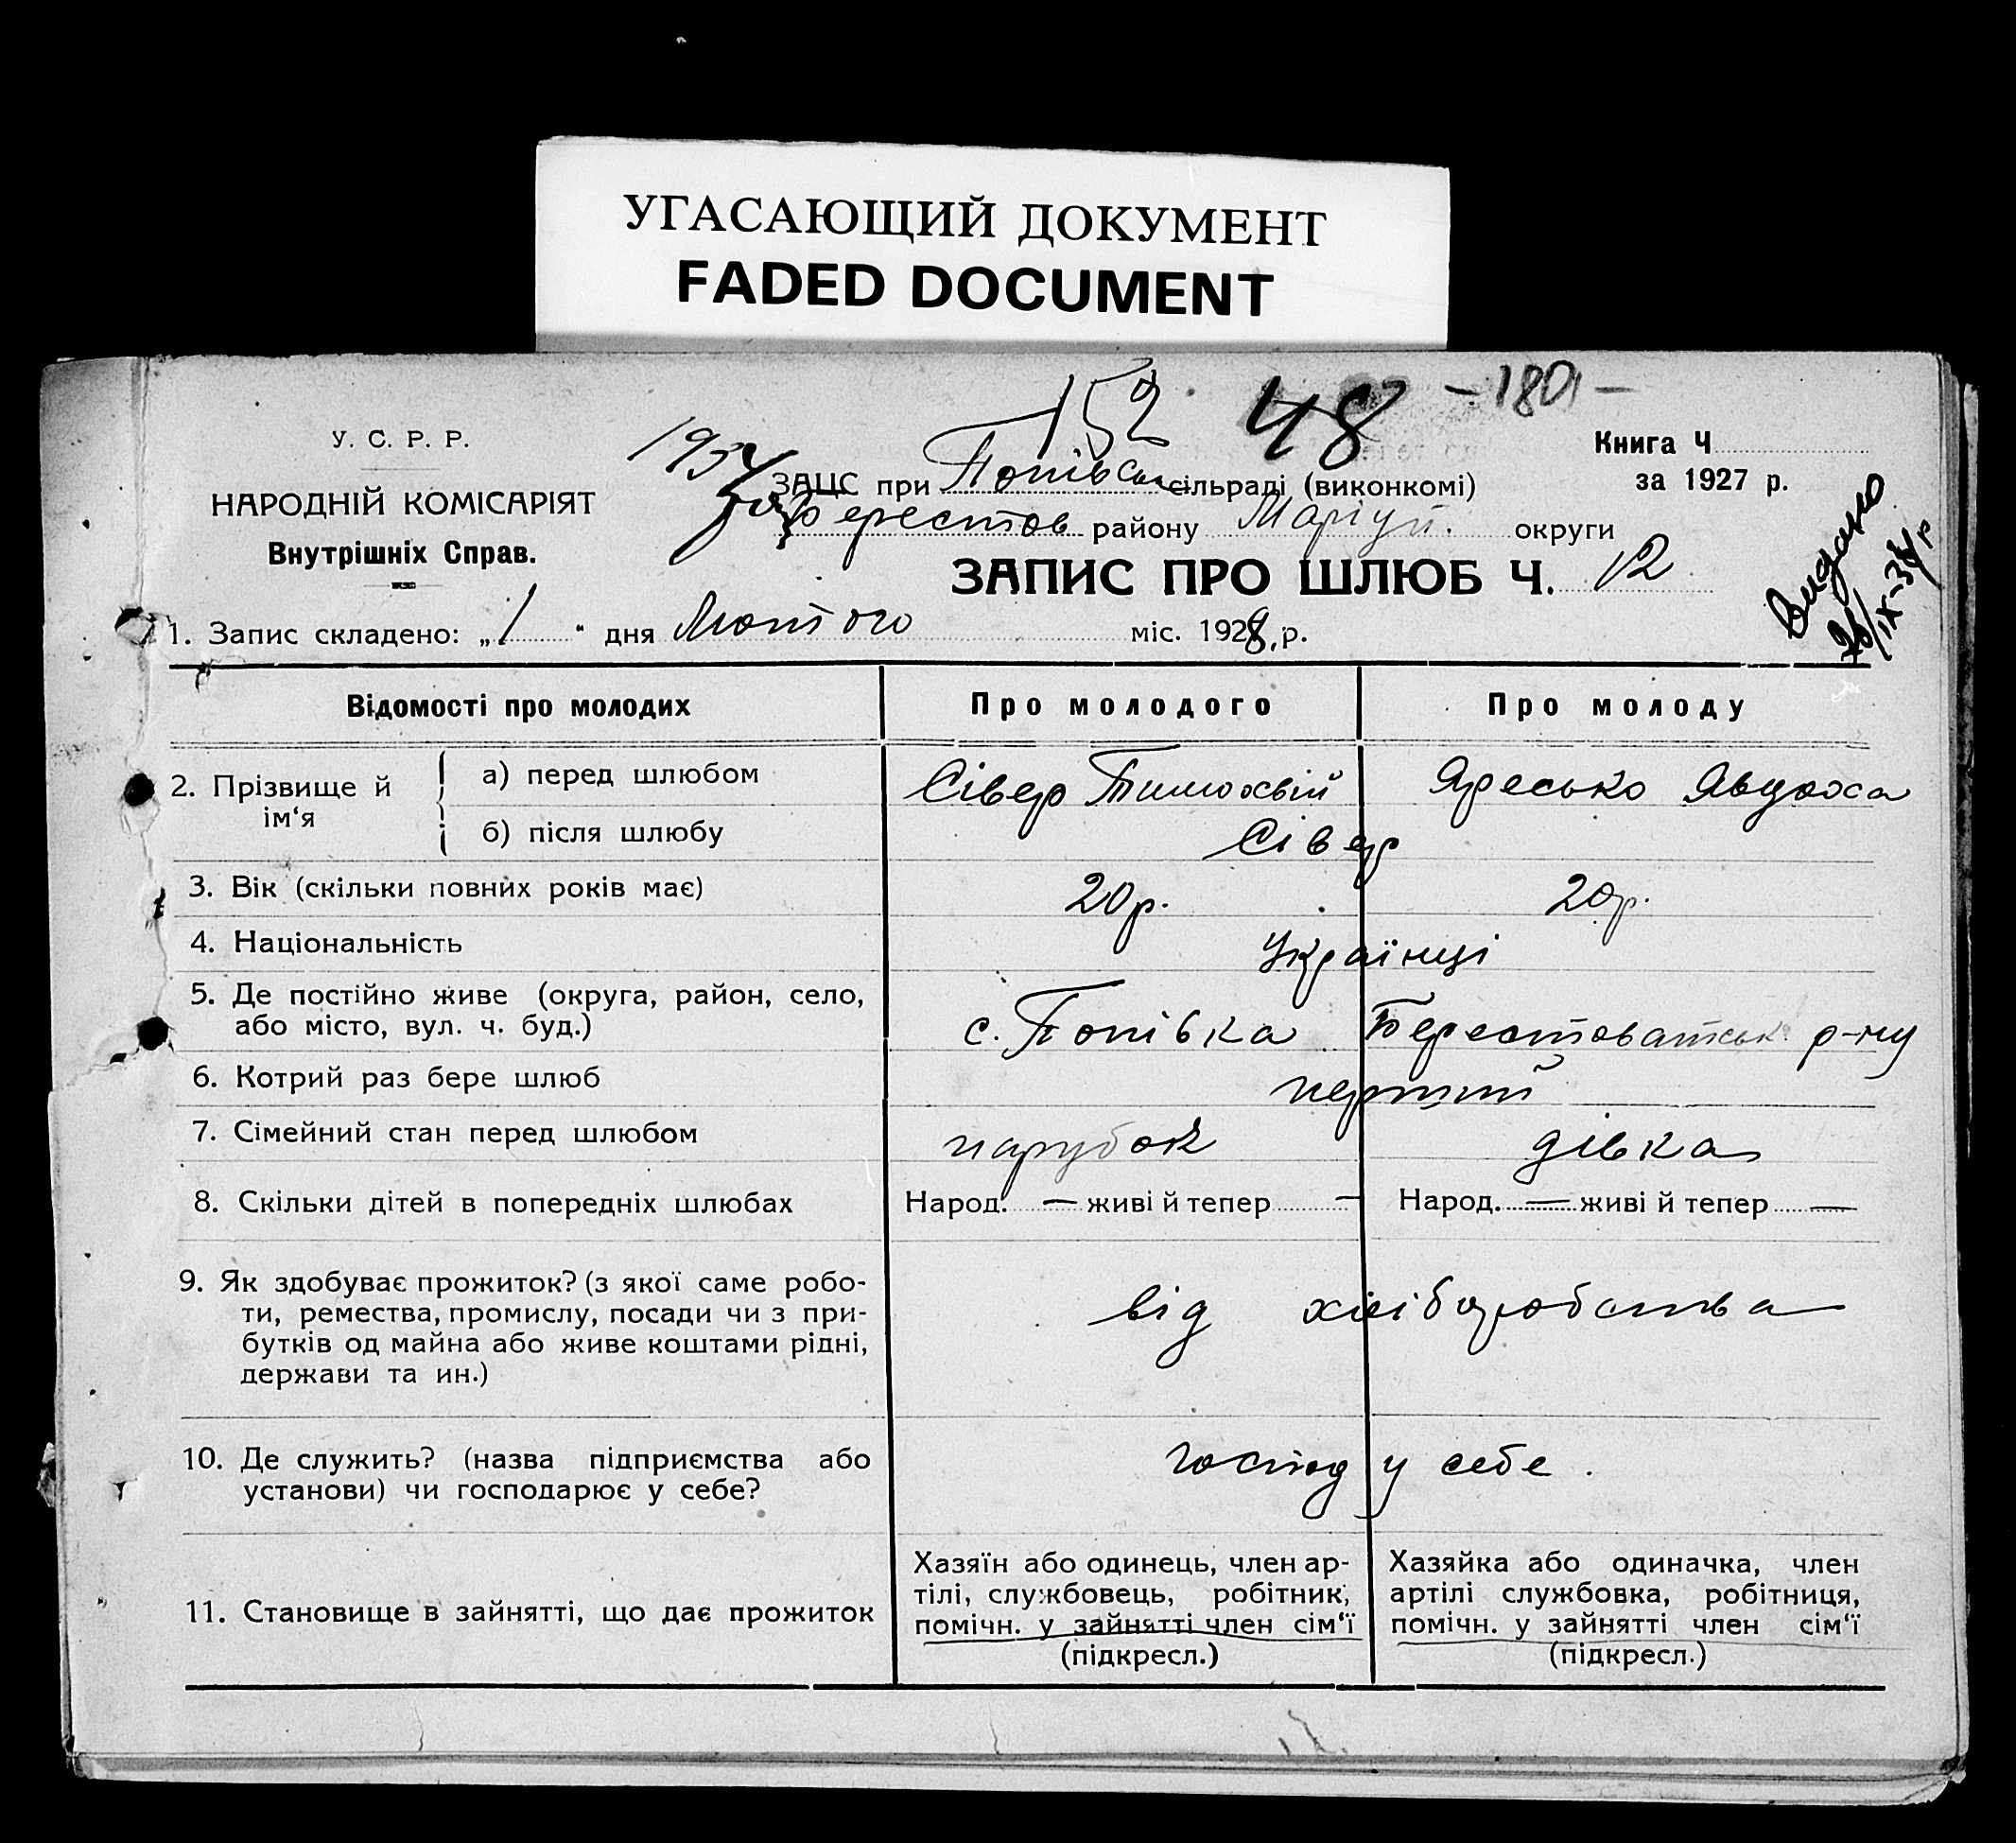 УГАСАЮЩИЙ ДОКУМЕНТ
FADED DOCUMENT
152 48 - 1801 -
У. С. Р. Р.
НАРОДНІЙ КОМІСАРІЯТ
Внутрішніх Справ.
Книга Ч
за 1927 р.
ЗАЦС при Попівськ сільраді (виконкомі)
Берестов району Маріуп. округи
ЗАПИС ПРО ШЛЮБ Ч. 12
Видано
26/IX-34 р
1. Запис складено: „1" дня Лютого міс. 1928, р.
Відомості про молодих Про молодого Про молоду
2. Прізвище й ім‘я
а) перед шлюбом Сівер Тимохвій Яресько Явдоха
б) після шлюбу Сівер
3. Вік (скільки повних років має) 20р. 20р.
4. Національність Українці
5. Де постійно живе (округа, район, село,
або місто, вул. ч. буд.) с. Попівка Берестоватськ. р-ну
6. Котрий раз бере шлюб перший
7. Сімейний стан перед шлюбом парубок дівка
8. Скільки дітей в попередніх шлюбах Народ. — живі й тепер — Народ. — живі й тепер —
9. Як здобуває прожиток? (з якої саме робо-
ти, ремества, промислу, посади чи з при-
бутків од майна або живе коштами рідні,
держави та ин.)
від хліборобства
10. Де служить? (назва підприємства або
установи) чи господарює у себе?
господ у себе.
11. Становище в зайнятті, що дає прожиток
Хазяїн або одинець, член ар-
тілі, службовець, робітник,
помічн. у зайнятті член сім‘ї
(підкресл.)
Хазяйка або одиначка, член
артілі службовка, робітниця,
помічн. у зайнятті член сім‘ї
(підкресл.)